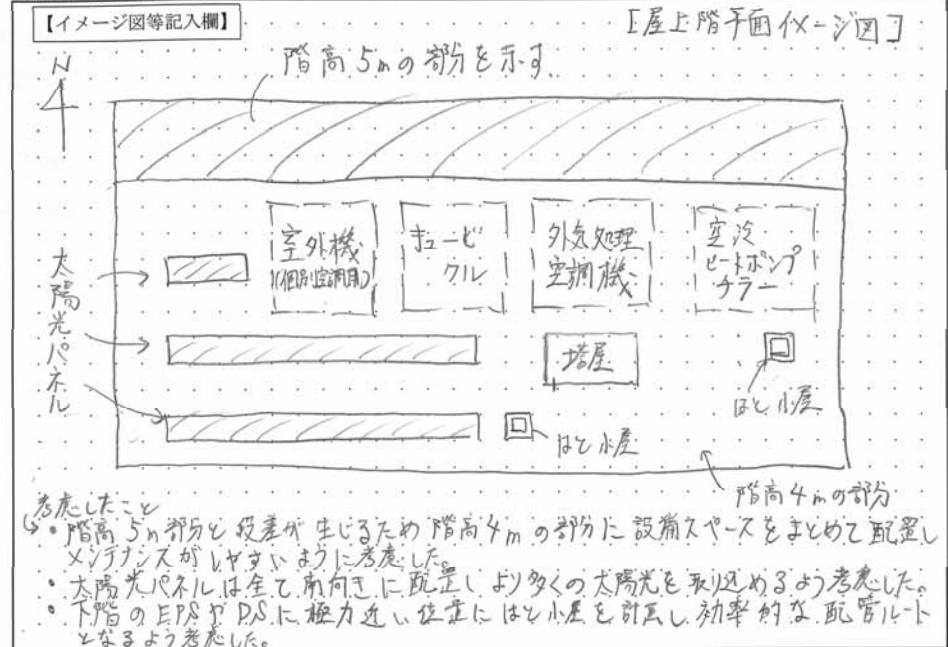 【イメージ図等記入欄】
[屋上階平面イメージ図]
N
階高5mの部分を示す
室外機
(個別空調用)
キュービ
クル
外気処理
空調機
空冷
ヒートポンプ
チラー
太陽光パネル
塔屋
はと小屋
はと小屋
階高4mの部分
考慮したこと
・階高5m部分と段差が生じるため階高4mの部分に設備スペースをまとめて配置し
メンテナンスがしやすいように考慮した。
・太陽光パネルは全て南向きに配置しより多くの太陽光を取り込めるよう考慮した。
・下階のEPSやDSに極力近い位置にはと小屋を計画し効率的な配管ルート
となるよう考慮した。